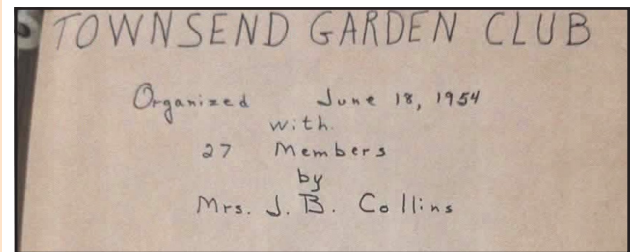 TOWNSEND GARDEN CLUB
Organized June 18, 1954
with
27 Members
by
Mrs. J. B. Collins